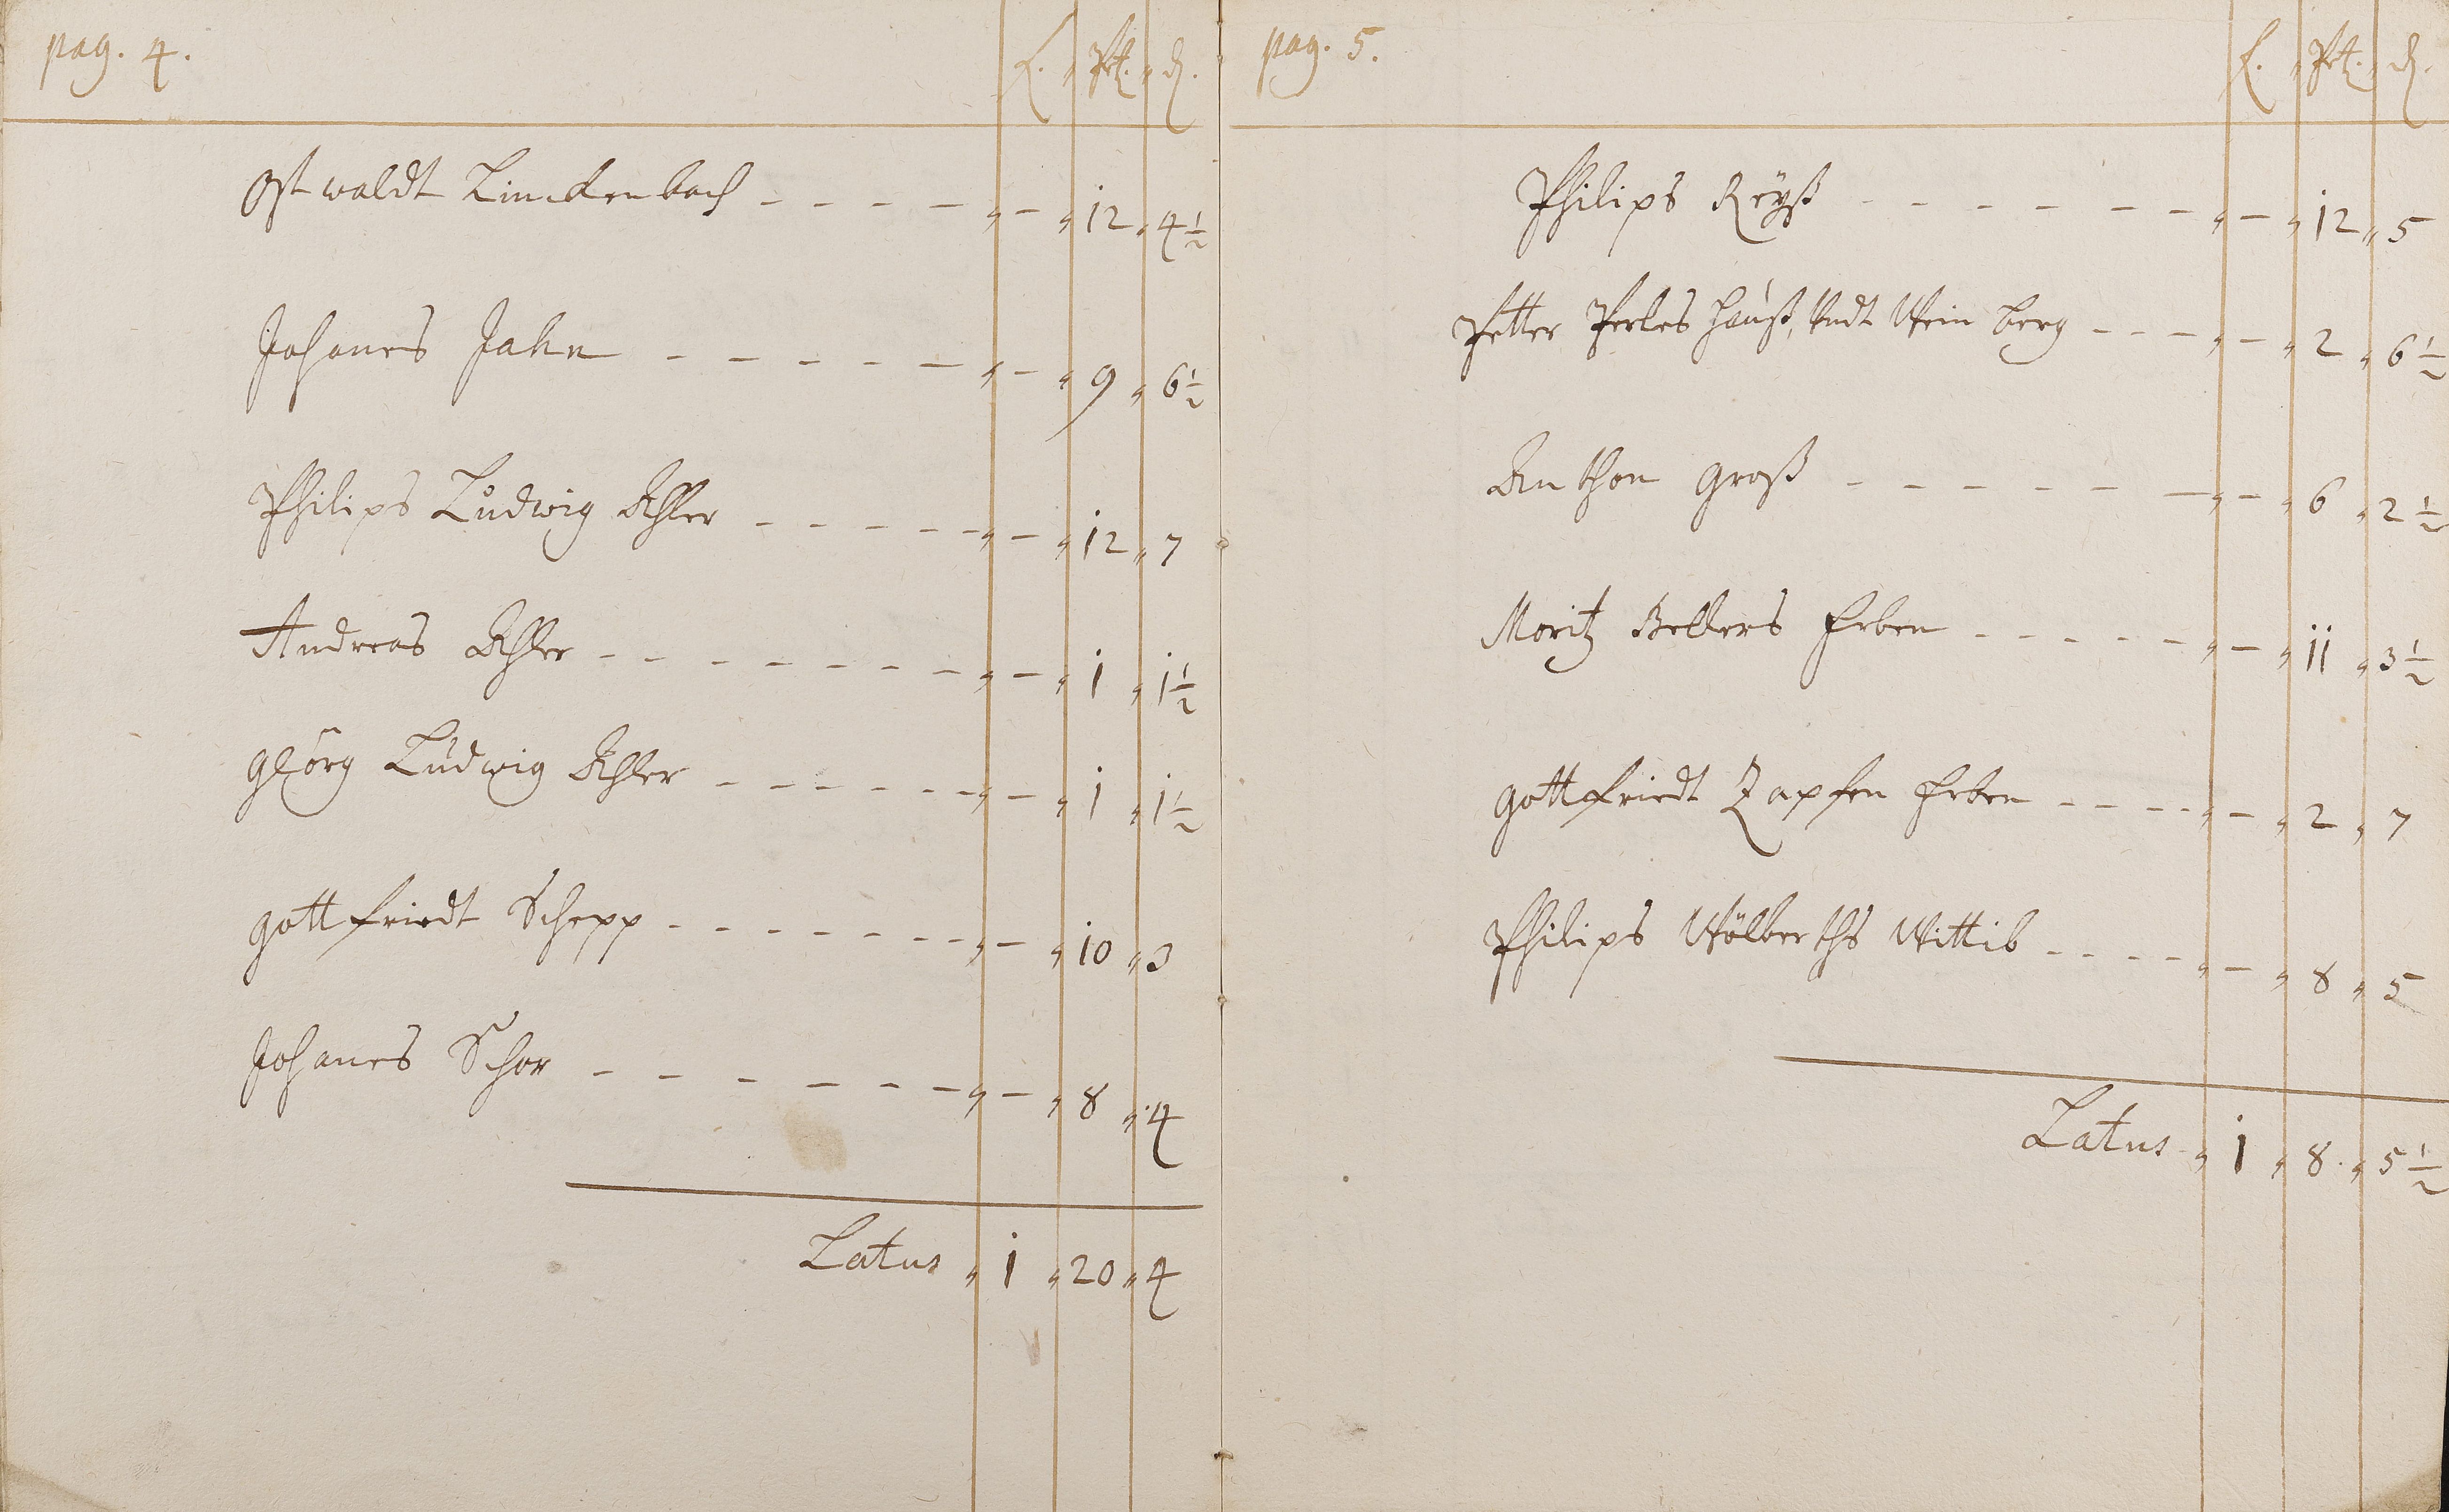 pag. 4.
f. " Pet. " d.
Ostwaldt Linckenbach - - - - " - " 12 " 4 1/2
Johanes Jahn - - - - - " - " 9 " 6 1/2
Philips Ludwig Ehler - - - - - " - " 12 " 7
Andreas Ehler - - - - - - - - " - " 1 " 1 1/2
Georg Ludwig Ehler - - - - - - - " - " 1 " 1 1/2
Gottfriedt Schepp - - - - - - - - " - " 10 " 3
Johanes Schor - - - - - - " - " 8 " 4
Latus " 1 " 20 " 4
pag. 5.
f. " Pet. " d.
Philips Reyß - - - - - - - " - " 12 " 5
Petter Perles Hauß, Undt Wein berg - - - " - " 2 " 6 1/2
Anthon Groß - - - - - - " - " 6 " 2 1/2
Moritz Bellers Erben - - - - - - " - " 11 " 3 1/2
Gottfriedt Zapfen Erben - - - - - " - " 2 " 7
Philips Wölberths Wittib - - - - " - " 8 " 5
Latus " 1 " 8 " 5 1/2